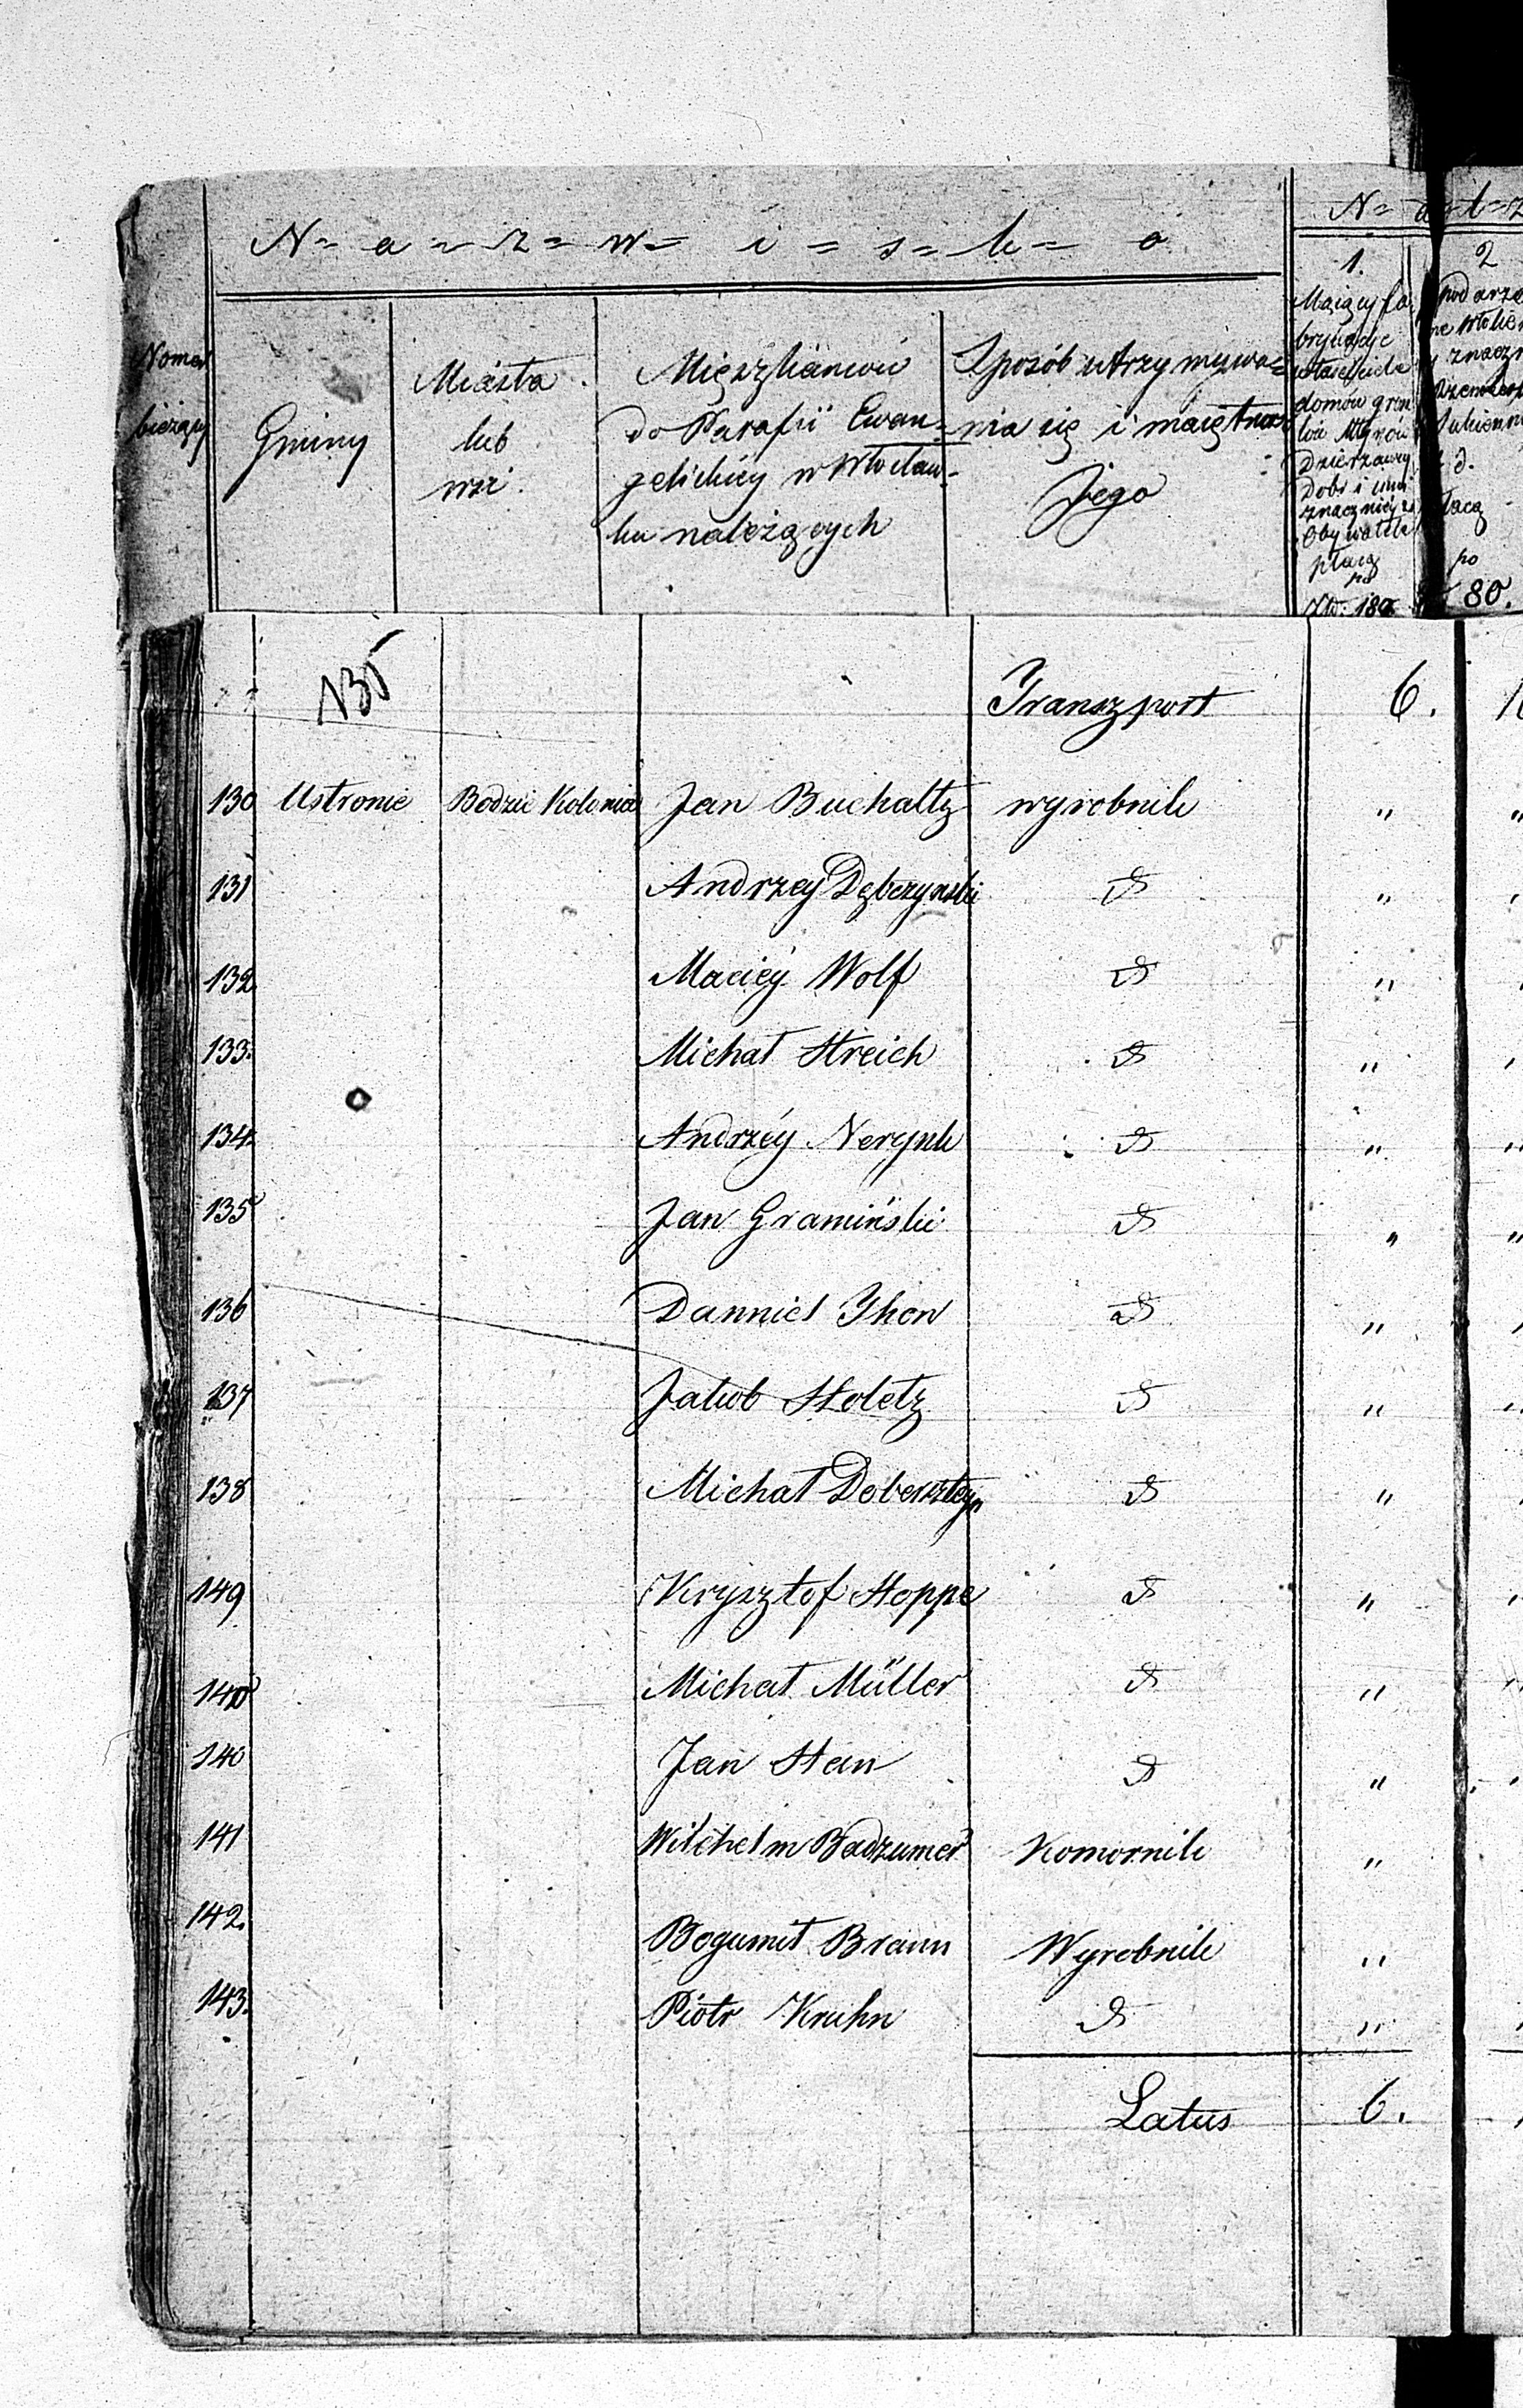 N = a = z = w = i = s = k = o
N = a = l = e
Nomer
bieżący
Gminy
Miasta
lub
wsi
Mięszkańców
do Parafii Ewan=
gelickiey w Włocław=
ku należących
Sposób utrzymywa=
nia się i maiętność
Jego
1.
Maiący fa
domów gren
Dzierżawcy
Dobr i inni
znacznieysi
Obywatele
płacą
po
Złp: 180
2
płacą
po
80.
135
Transzport 6.
130 Ustronie Bodzie Kolonia Jan Buchaltz wyrobnik "
131 Andrzey Dębczynski d "
132 Maciéy Wolf d "
133. Michał Streich d "
134. Andrzéy Nerynk d "
135 Jan Gramiński d "
136 Danniel Jhon d "
137 Jakob Stoletz d "
138 Michał Doberszteyn d "
149 Krysztof Hoppe d "
140 Michał Müller d "
140 Jan Stan d "
141 Wilchelm Badzumer Komornik "
142. Bogumił Braun Wyrobnik "
143. Piotr Kruhn d "
Latus 6.